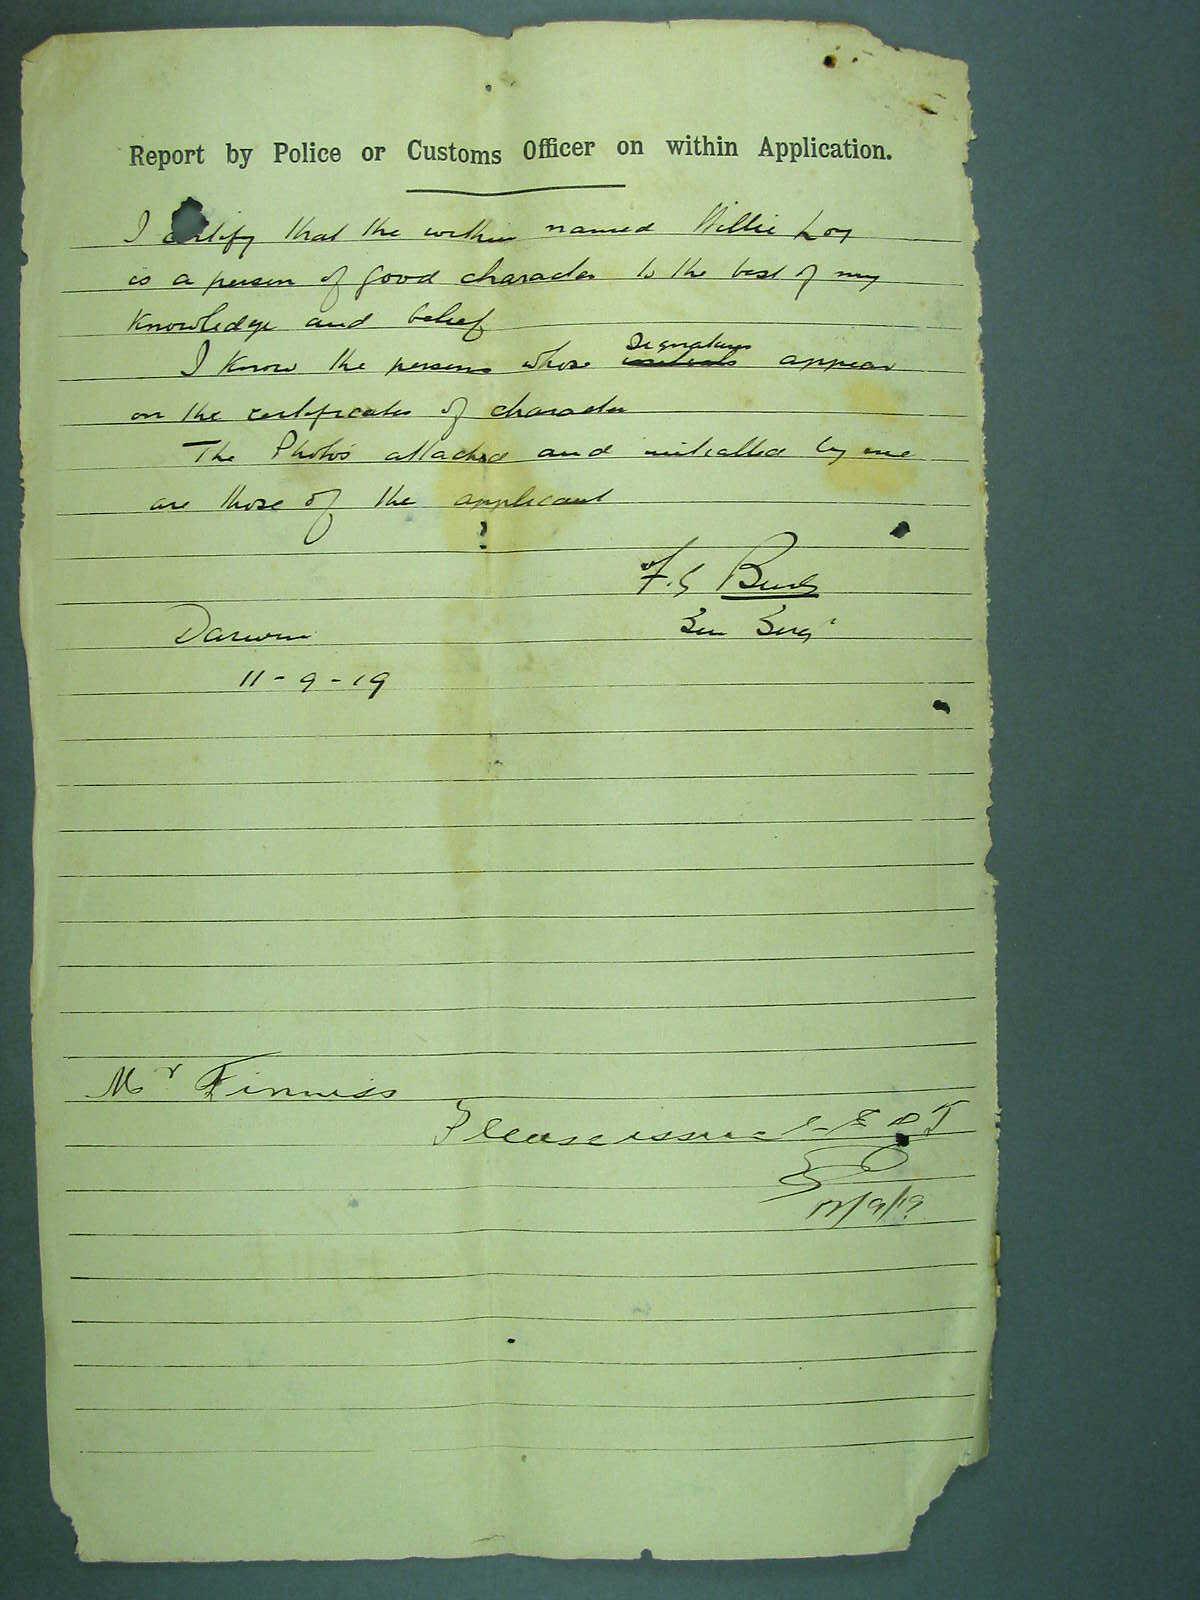 Report by Police or Customs Officer on within Application.
I certify that the within named Willie Loy
is a person of good character to the best of my
knowledge and belief
signatures
I know the persons whose initials appear
on the certificates of character
The Photos attached and initialled by me
are those of the applicant
F. G
Sen Serg
Darwin
11-9-19
Mr Finniss
Please issue C.E.D.T
12/9/19